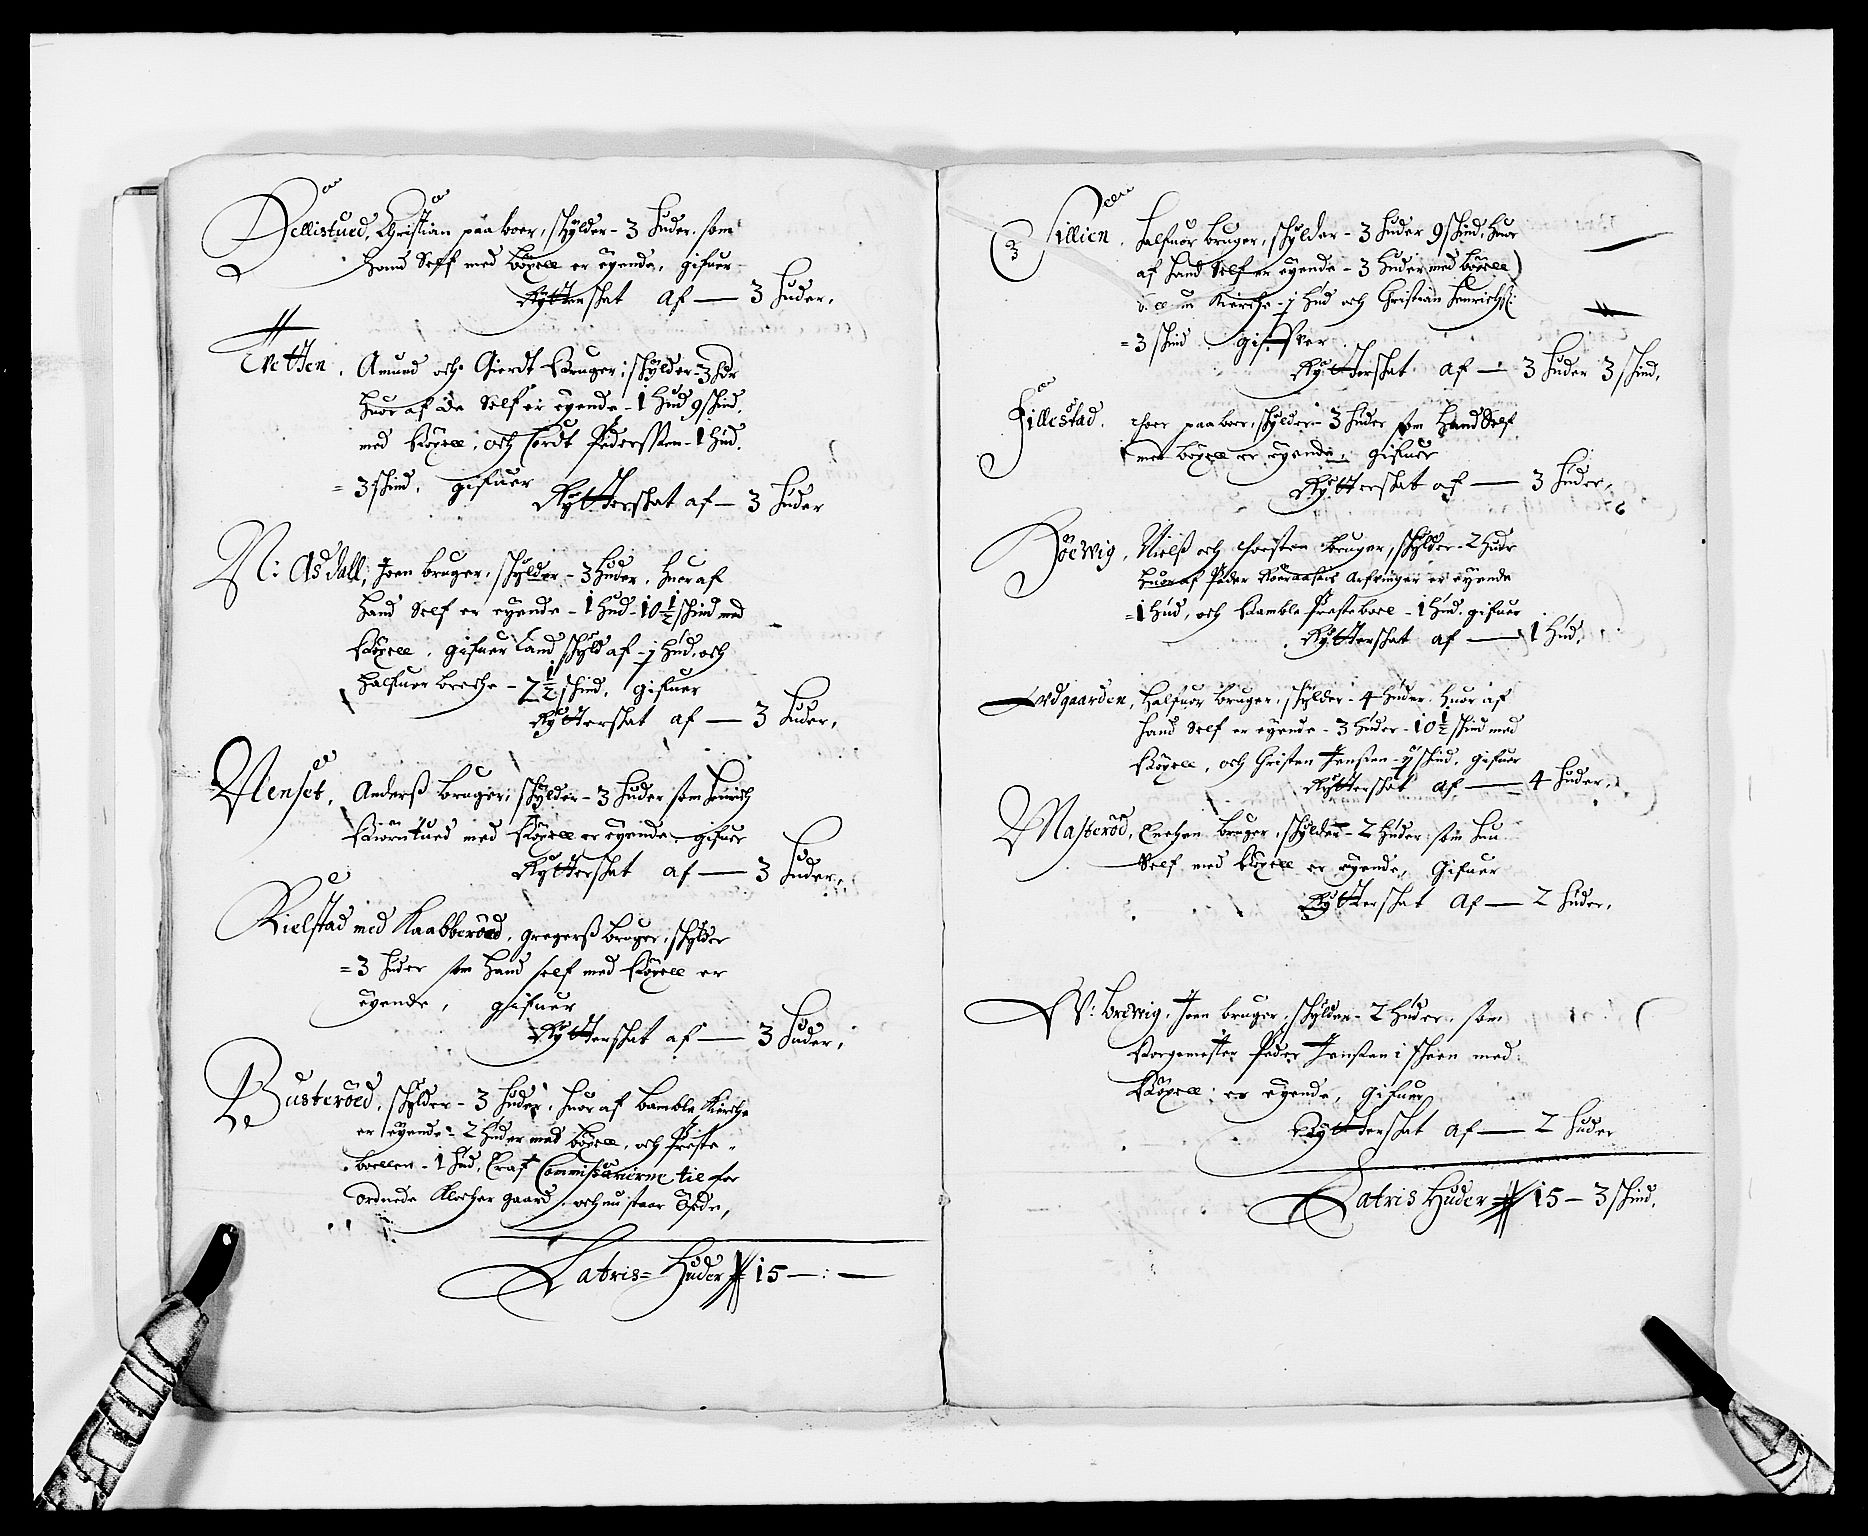 Dellistued, Christian paaboer, skylder - 3 huder, som
hand Self med böxell er eyende, gifuer
Rytterskat af — 3 huder,
Tvetten, Amund och Gierdt bruger, skylder - 3 hdr
huor af de Self er eyende - 1 hud 9 skind,
med böxell, och Cordt Pederssøn - 1 hud
= 3 skind, gifuer
Rytterskat af — 3 huder
N: Asdall, Joen bruger, skylder - 3 huder, huor af
hand Self er eyende - 1 hud - 10½ skind med
böxell, gifuer Land skyld af - j hud, och
halfuor breche - 7½ skind, gifuer
Rytterskat af — 3 huder,
Menset, Anderß bruger, skylder - 3 huder som henrich
biörntued med böxell er eyende gifuer
Rytterskat af — 3 huder,
Kielstad med Raabberöed, gregerß bruger, skylder
= 3 huder som hand self med böxell er
eyende, gifuer
Rytterskat af — 3 huder,
Busteröed, skylder - 3 huder, huor af bamble Kirche
er eyende - 2 huder med böxell, och Preste-
boellen - 1 hud, Er af Commissarierne til for
ordnede Klocher gaard, och nu staar öede,
Latris = Huder 15 — : —
3
Tillien, halfuor bruger, skylder - 3 huder 9 skind, huor
af hand Self er eyende - 3 huder med böxell
Kierche - j hud och Christian henrichß:
= 3 skind gifver
Rytterskat af — 3 huder 3 skind,
Fillestad, paaboer, skylder - 3 huder som hand Self
med böxell er eyende, gifuer
Rytterskat af — 3 huder,
Höewig, Nielß och thorsten bruger, skylder - 2 hudr
huor af Peder Arfvinger er eyende
= 1 hud, och bamble Presteboell - 1 hud, gifuer
Rytterskat af — 1 hud,
Ordgaarden, halfuor bruger, skylder - 4 huder, huor af
hand Self er eyende - 3 huder - 10½ skind med
böxell, och Christen Jensøn - skind, gifuer
Rytterskat af — 4 huder,
Masteröd, Enchen bruger, skylder - 2 huder som hun
Self med böxell er eyende, Gifuer
Rytterskat Af — 2 huder,
V: brewig, Joen bruger, skylder - 2 huder, som
borgemester Peder Jensøn i skeen med
böxell er eyende, Gifuer
Rytterskat af — 2 huder
Latris Huder 15 — 3 skind,